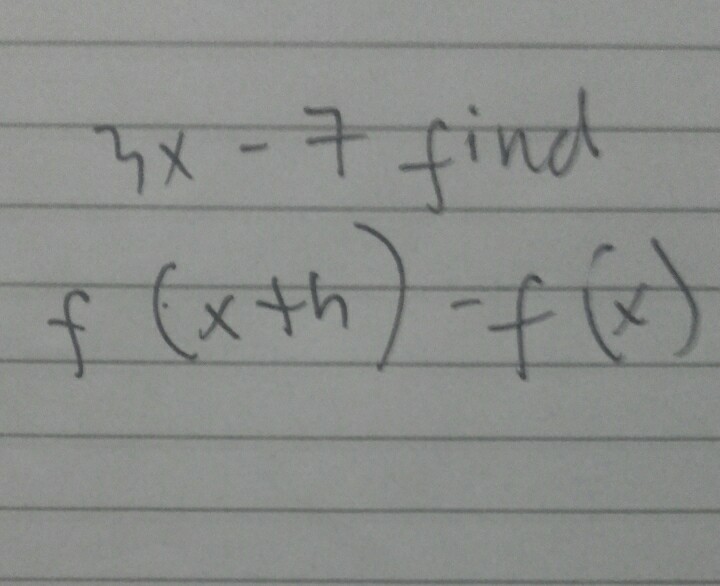 3x - 7 find
f (x+h) - f (x)